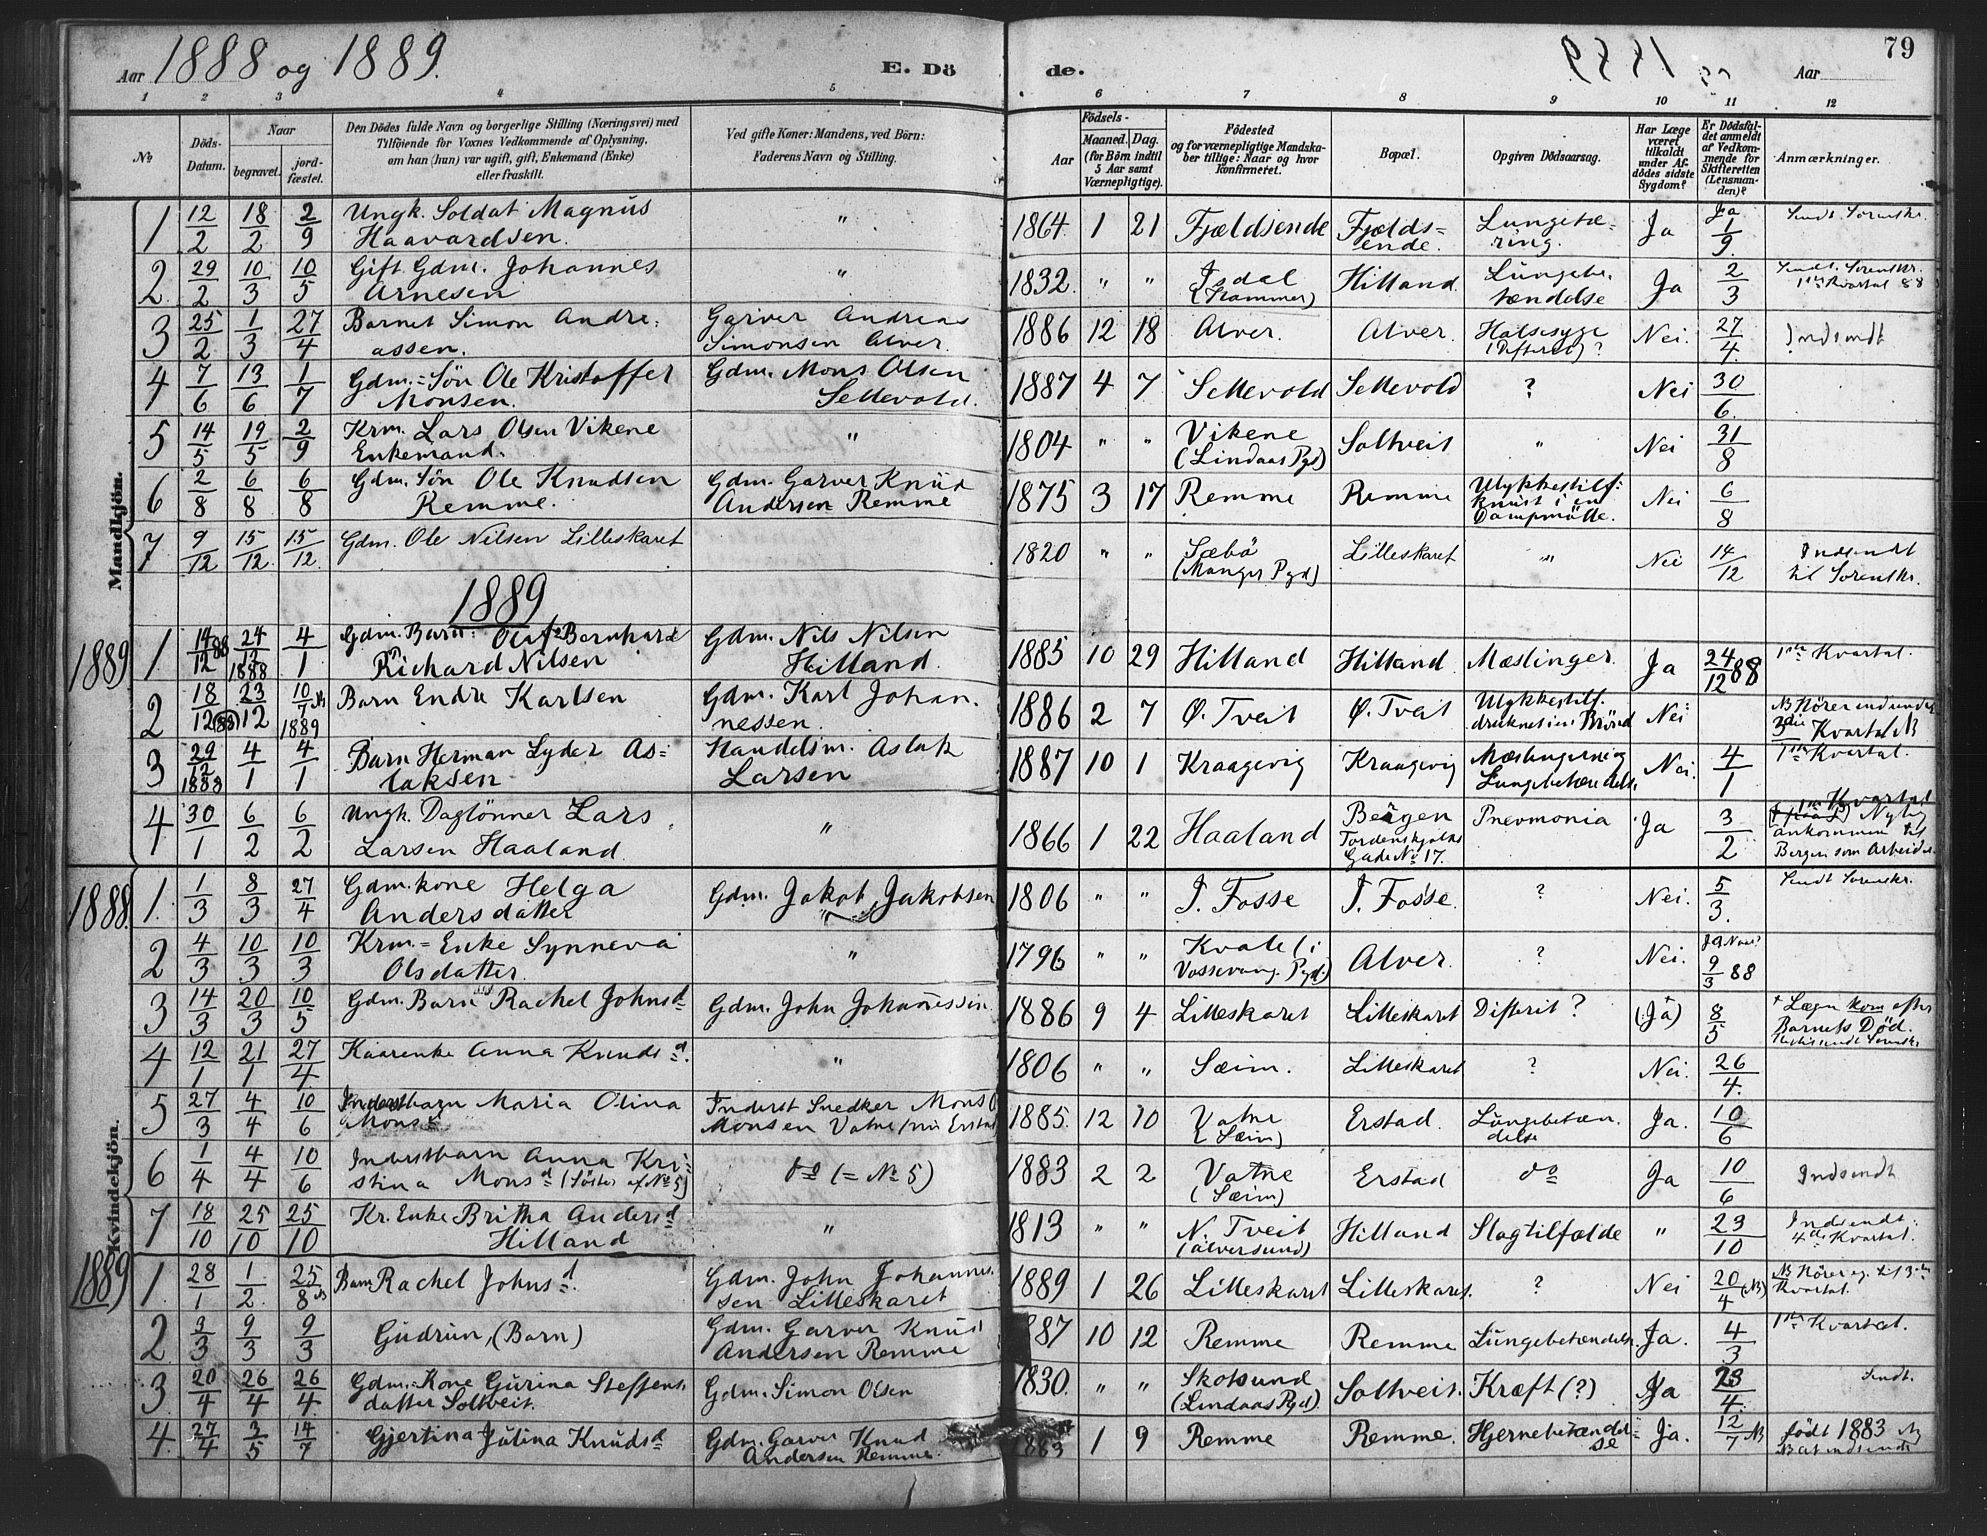 Aar 1888 og 1889.
E. Dö
de.
Aar
79
1 2 3 4 5 6 7 8 9 10 11 12
№
Döds-Datum.
Naar
begravet.
jord-fæstet.
Den Dödes fulde Navn og borgerlige Stilling (Næringsvei) med
Tilföiende for Voxnes Vedkommende af Oplysning,
om han (hun) var ugift, gift, Enkemand (Enke)
eller fraskilt.
Ved gifte Koner: Mandens, ved Börn:
Faderens Navn og Stilling.
Födsels-
Aar
Maaned. Dag.
(for Börn indtil
5 Aar samt
Værnepligtige).
Födested
og for værnepligtige Mandska-
ber tillige: Naar og hvor
konfirmeret.
Bopæl.
Opgiven Dödsaarsag.
Har Læge
været
tilkaldt
under Af-
dödes sidste
Sygdom?
Er Dödsfal-
det anmeldt
af Vedkom-
mende for
Skifteretten
(Lensman-
den)?
Anmærkninger.
Mandkjön.
1 12/2 18/2 2/9 Ungk. Soldat Magnus Haavardsen. " 1864 1 21 Fjeldsende Fjelds=ende. Lungetæ=ring. Ja Ja 1/9. Sendt Sorenskr.
2 29/2 10/3 10/5 Gift Gdm. Johannes Arnesen " 1832. " " Isdal (Hammer) Hilland. Lungebe.tændelse Ja 2/3 Sendt Sorenskr. 1ste Kvartal 88
3 25/2 1/3 27/4 Barnet Simon Andre.assen. Garver Andreas Simonsen Alver. 1886 12 18 Alver. Alver. Halssyge (Difterit)? Nei. 27/4. Indsendt
4 7/6 13/6 1/7 Gdm.=Søn Ole Kristoffer Monsen. Gdm. Mons Olsen Sellevold. 1887 4 7 Sellevold Sellevold ? Nei 30/6.
5 14/5 19/5 2/9 Krm. Lars Olsen Vikene Enkemand. " 1804 " " Vikene (Lindaas Pgd) Soltveit " Nei 31/8
6 2/8 6/8 6/8 Gdm. Søn Ole Knudsen Remme. Gdm. Garver Knud Andersen Remme 1875 3 17 Remme Remme Ulykkestilf: knust i en Dampmølle. Nei 6/8
7 9/12 15/12 15/12 Gdm. Ole Nilsen Lilleskaret 1820 " " Sæbø (Manger Pgd) Lilleskaret " Nei 14/12 Indsendt til Sorenskr.
1889
1889 1 14/12 88 24/12 1888 4/1 Gdm. Barn: Olaf Bernhard Richard Nilsen Gdm. Nils Nilsen Hilland. 1885 10 29 Hilland Hilland. Mæslinger. Ja 24/12 88 1ste Kvartal.
2 18/12 (88) 23/12 10/7 1889 Barn Endre Karlsen Gdm. Karl Johan.nessen. 1886 2 7 Ø. Tveit Ø. Tveit Ulykkestilf. druknet i en Brønd Nei NB Hører 3die Kvartal NB
3 29/12 1888 4/1 4/1 Barn Herman Lyder As=laksen Handelsm. Aslak Larsen 1887 10 1 Kraagevig Kraagevig Mæslingerne og Lungebetændelse Nei. 4/1 1ste Kvartal.
4 30/1 6/2 6/2 Ungk. Dagtønner Lars Larsen Haaland. " 1866 1 22 Haaland Bergen Tordenskjolds Gade № 17. Pnevmonia Ja 3/2 1ste Kvartal Nylig ankommen til Bergen som Arbeider
Kvindekjön.
1888. 1. 1/3 8/3 27/4 Gdm.kone Helga Andersdatter Gdm. Jakob Jakobsen 1806 " " I. Fosse I. Fosse. ? Nei. 5/3. Sendt Sorenskr.
2 4/3 10/3 10/3 Krm.=Enke Synneva Olsdatter. " 1796 " " Kvale (i Vossevang. Pgd.) Alver. ? Nei. 9/3 88
3 14/3 20/3 10/5 Gdm. Barn Rachel Johnsd. Gdm. John Johannessen. 1886 9 4 Lilleskaret Lilleskaret Difterit? (Ja) 8/5 + Lægen kom efter Barnets Død.
4 12/1 21/1 27/4 Kaarenke Anna Knudsd. " 1806 " " Sæim. Lilleskaret ? Nei. 26/4.
5 27/3 4/4 10/6 Inderstbarn Maria Olina Monsd. Inderst Snedker Mons Monsen Vatne (nu Erstad 1885. 12 10 Vatne (Sæim) Erstad. Lungebetæn.delse Ja. 10/6
6 1/4 4/4 10/6 Inderstbarn Anna Kri=stina Monsd. (Søster af № 5) do (= № 5) 1883 2 2 Vatne (Sæim) Erstad do Ja 10/6 Indsendt
7 18/10 25/10 25/10 Kr. Enke Britha Andersd. Hilland " 1813 " " N. Tveit (Alversund) Hilland Slagtilfælde " 23/10 Indsendt. 4de Kvartal.
1889 1. 28/1 1/2. 25/8 Barn Rachel Johnsd. Gdm. John Johannes.sen Lilleskaret 1889 1 26 Lilleskaret Lilleskaret. ? Nei 20/4 (NB) NB Hører til 3die Kvartal.
2 3/3 9/3 9/3 Gudrun, (Barn) Gdm. Garver Knud Andersen Remme 887 10 12 Remme Remme Lungebetændelse. Ja. 4/3 1ste Kvartal.
3 20/4 26/4 26/4 Gdm.=Kone Gurina Steffens.datter Soltveit. Gdm. Simon Olsen 1830. " " Skotsund (Lindaas Pgd). Soltveit. Kræft (?) Ja 23/4. Sendt.
4. 27/4 3/5 14/7 Gjertina Julina Knudsd Gdm. Garver Knud Andersen Remme. 1883 1 9 Remme Remme. Hjernebetændel=se Ja. 12/7 NB født 1883